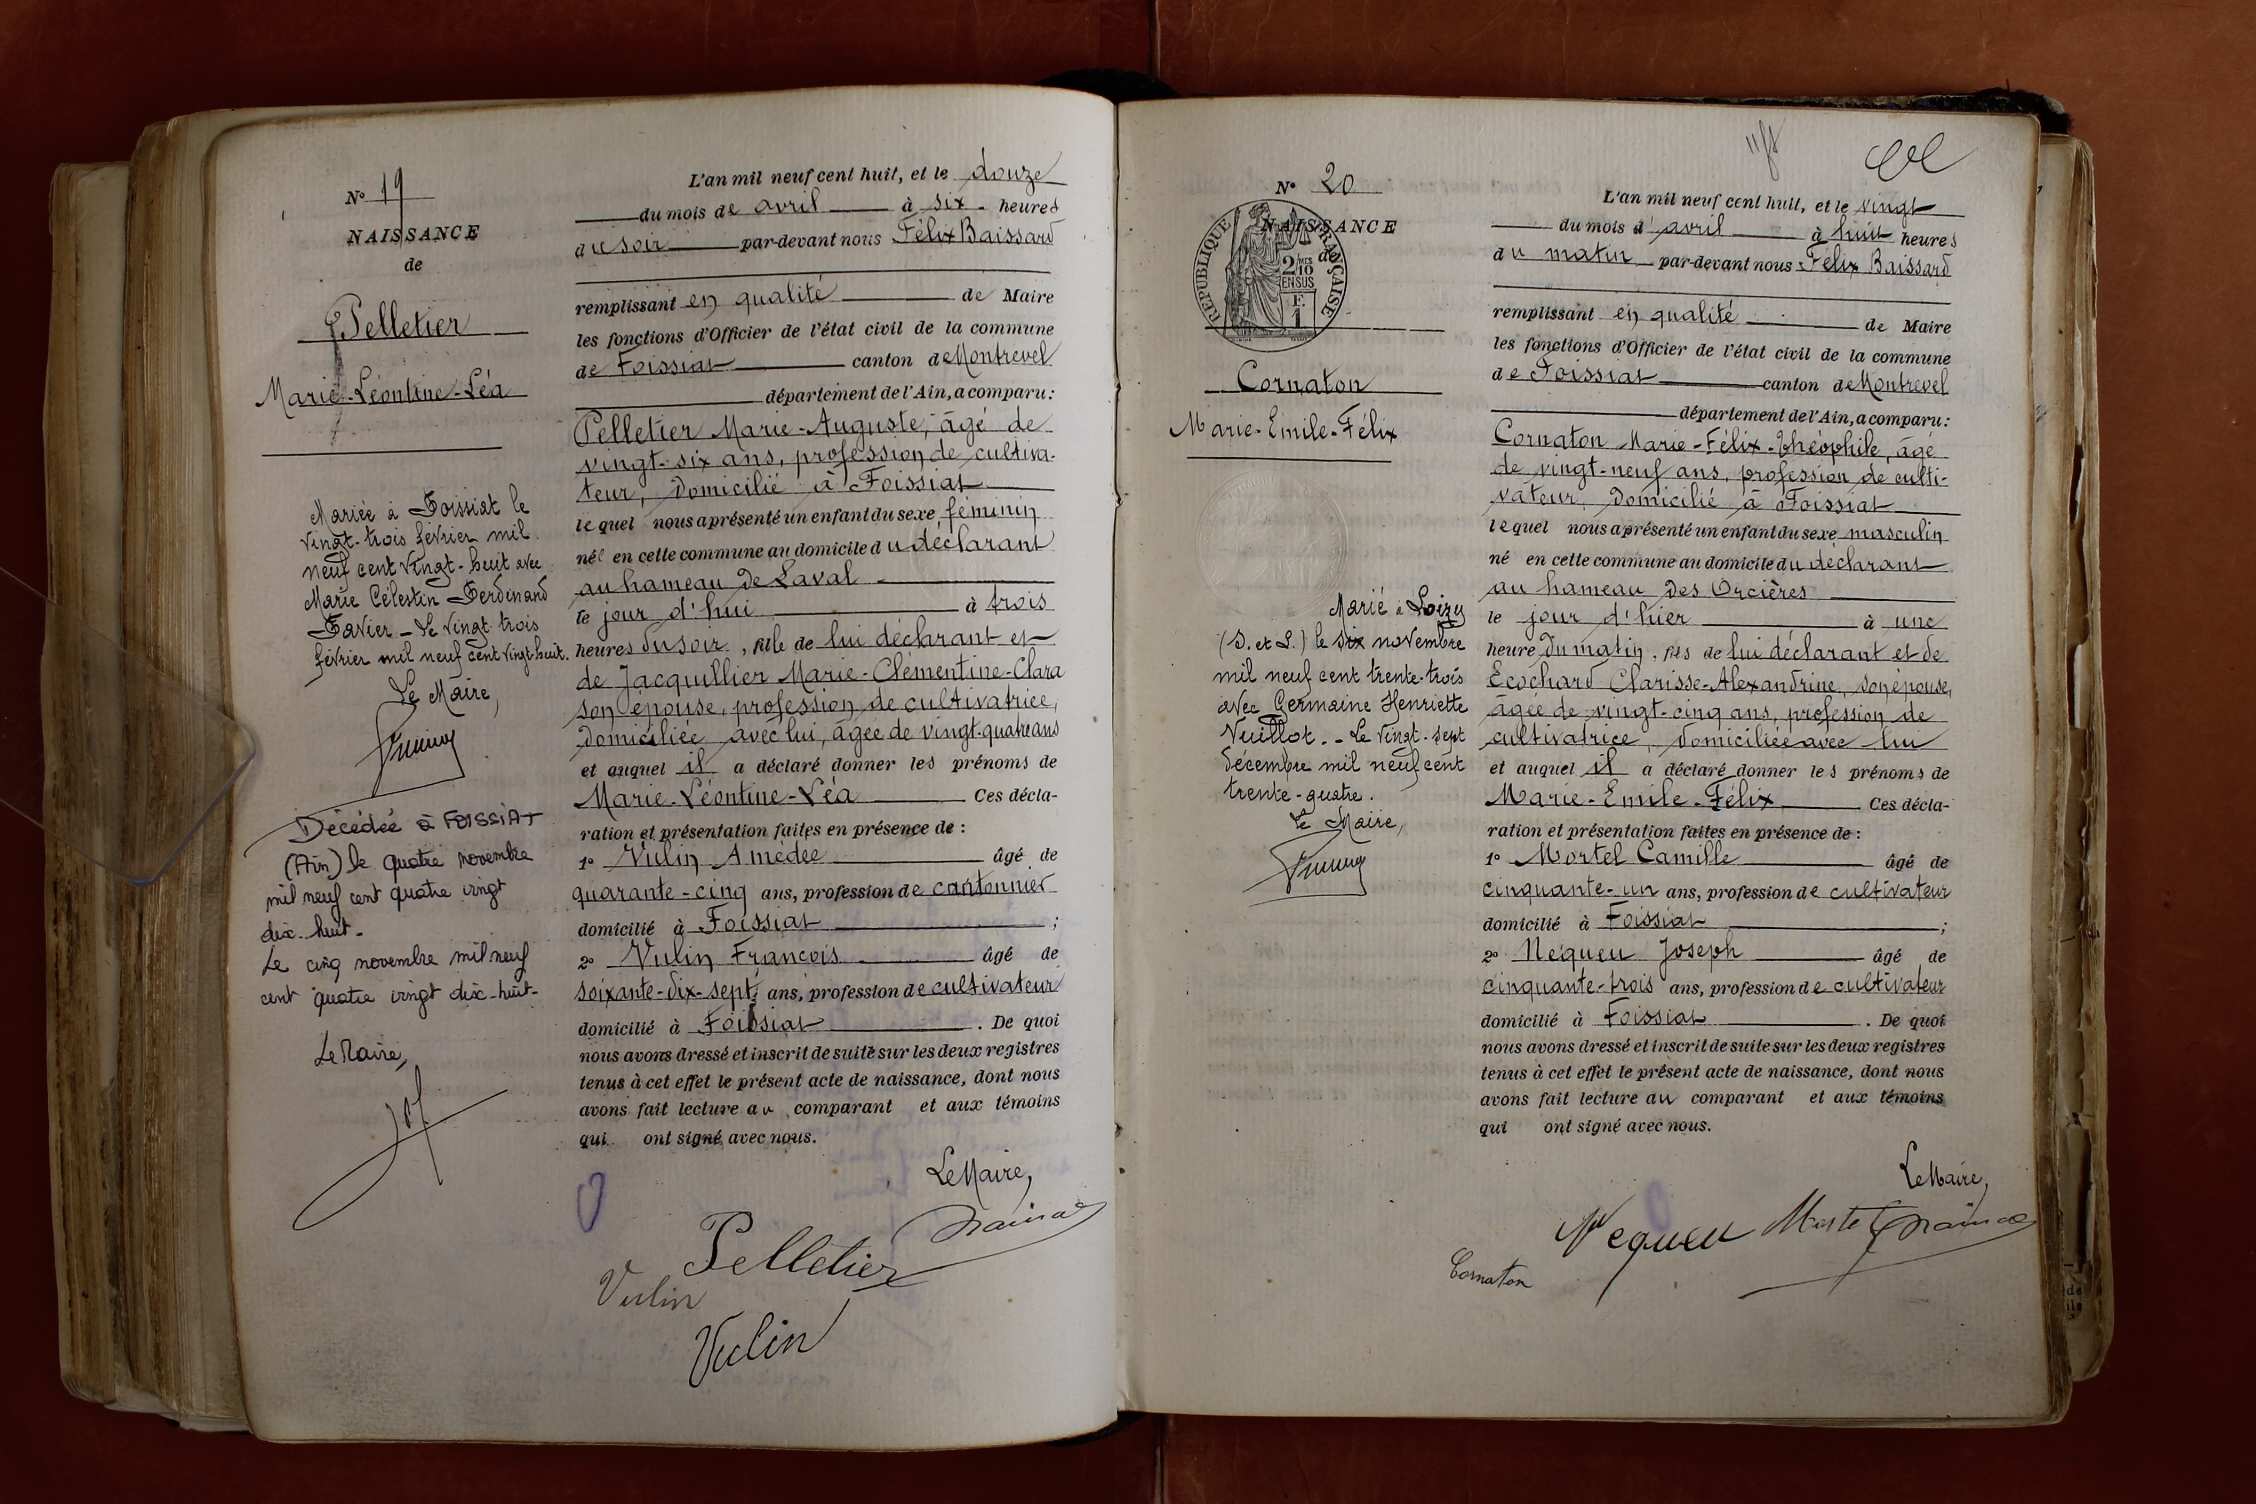 N° 19
NAISSANCE
de
Pelletier
Marie-Léontine-Léa
Mariée à Foissiat le
vingt-trois février mil
neuf cent vingt-huit avec
Marie Célestin Ferdinand
Favier - Le vingt trois
février mil neuf cent vingt-huit.
Le Maire,
Décédée à FOISSIAT
(Ain) le quatre novembre
mil neuf cent quatre vingt
dix-huit.
Le cinq novembre mil neuf
cent quatre vingt dix-huit.
Le Maire,
L'an mil neuf cent huit, et le douze
du mois de avril à six heures
du soir par-devant nous Félix Baissard
remplissant en qualité de Maire
les fonctions d'Officier de l'état civil de la commune
de Foissiat canton de Montrevel
département de l'Ain, a comparu:
Pelletier Marie-Auguste, âgé de
vingt-six ans, profession de cultiva-
teur, domicilié à Foissiat
lequel nous a présenté un enfant du sexe féminin
née en cette commune au domicile du déclarant
au hameau de Laval
le jour d'hui à trois
heures du soir, fille de lui déclarant et
de Jacquillier Marie-Clémentine-Clara
son épouse, profession de cultivatrice,
domiciliée avec lui, âgée de vingt-quatre ans
et auquel il a déclaré donner les prénoms de
Marie-Léontine-Léa Ces décla-
ration et présentation faites en présence de :
1° Vulin Amédée âgé de
quarante-cinq ans, profession de cantonnier
domicilié à Foissiat ;
2° Vulin François âgé de
soixante-dix-sept ans, profession de cultivateur
domicilié à Foissiat . De quoi
nous avons dressé et inscrit de suite sur les deux registres
tenus à cet effet le présent acte de naissance, dont nous
avons fait lecture au comparant et aux témoins
qui ont signé avec nous.
Le Maire,
Pelletier
Vulin
Vulin
N° 20
NAISSANCE
de
RÉPUBLIQUE FRANÇAISE
2 MES
10
EN SUS
F.
1
Cornaton
Marie-Emile-Félix
Marié à Loizy
(S. et L.) le six novembre
mil neuf cent trente-trois
avec Germaine Henriette
Vuillot. - Le vingt-sept
décembre mil neuf cent
trente-quatre.
Le Maire,
L'an mil neuf cent huit, et le vingt
du mois d'avril à huit heures
du matin par-devant nous Félix Baissard
remplissant en qualité de Maire
les fonctions d'Officier de l'état civil de la commune
de Foissiat canton de Montrevel
département de l'Ain, a comparu:
Cornaton Marie-Félix-Théophile, âgé
de vingt-neuf ans, profession de culti-
vateur, domicilié à Foissiat
lequel nous a présenté un enfant du sexe masculin
né en cette commune au domicile du déclarant
au hameau des Orcières
le jour d'hier à une
heure du matin, fils de lui déclarant et de
Ecochard Clarisse-Alexandrine, son épouse,
âgée de vingt-cinq ans, profession de
cultivatrice, domiciliée avec lui
et auquel il a déclaré donner les prénoms de
Marie-Emile-Félix Ces décla-
ration et présentation faites en présence de :
1° Mortel Camille âgé de
cinquante-un ans, profession de cultivateur
domicilié à Foissiat ;
2° Nequeu Joseph âgé de
cinquante-trois ans, profession de cultivateur
domicilié à Foissiat . De quoi
nous avons dressé et inscrit de suite sur les deux registres
tenus à cet effet le présent acte de naissance, dont nous
avons fait lecture au comparant et aux témoins
qui ont signé avec nous.
Le Maire,
Nequeu Mortel
Cornaton